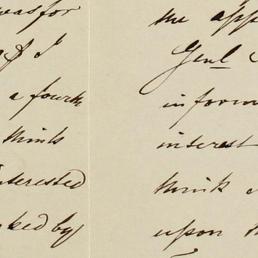 was for
of I
a fourth
thinks
interested
ked by
the app
Genl
inform
interest
think
upon th